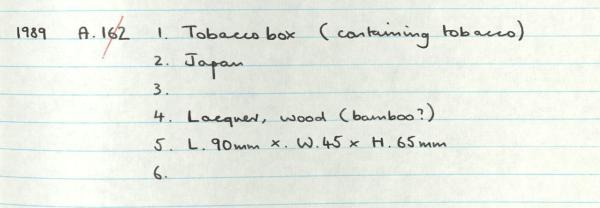 1989 A.162 1. Tobacco box (containing tobacco)
2. Japan
3.
4. Lacquer, wood (bamboo?)
5. L. 90mm x. W.45 x H. 65mm
6.